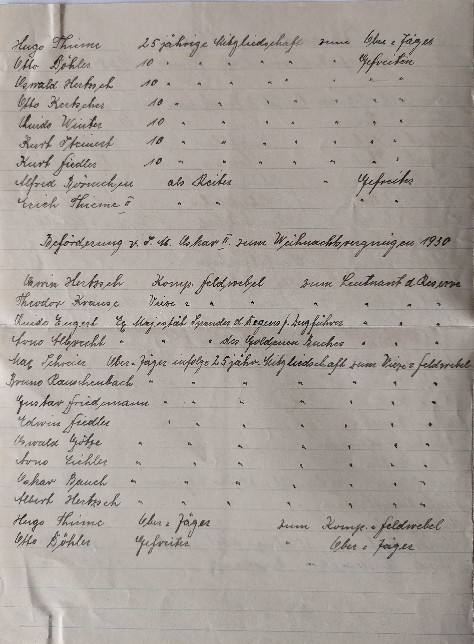 Hugo Thieme 25 jährige Mitgliedschaft zum Ober = Jäger
Otto Böhler 10 " " " " Gefreiten
Oswald Hertzsch 10 " " " " "
Otto Kertscher 10 " " " " "
Guido Winter 10 " " " " "
Kurt Steinert 10 " " " " "
Kurt Fiedler 10 " " " " "
Alfred Börnchen als Reiter " Gefreiter
Erich Thieme II " " " "
Beförderung v. S. M. Oskar II. zum Weihnachtsvergnügen 1930
Erwin Hertzsch Komp. Feldwebel zum Leutnant d. Reserve
Theodor Krause Vize = " " " " "
Guido Eugert Ex Majestät Spender d. Degens f. Zugführer " " "
Arno Albrecht " " " des Goldenen Buches " " "
Max Schreier Ober = Jäger infolge 25 jähr. Mitgliedschaft zum Vize = Feldwebel
Bruno Rauschenbach " " " " " " "
Gustav Friedemann " " " " " " "
Edwin Fiedler " " " " " " "
Oswald Götze " " " " " " "
Arno Eichler " " " " " " "
Oskar Bauch " " " " " " "
Albert Hertzsch " " " " " " "
Hugo Thieme Ober = Jäger zum Komp. = Feldwebel
Otto Böhler Gefreiter " Ober = Jäger